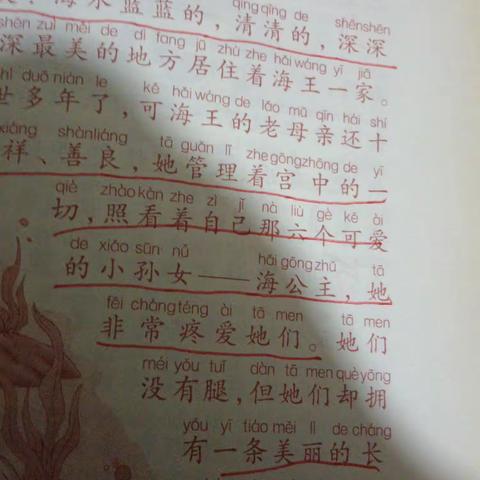 qīng qīng de shēnshēn
海水蓝蓝的，清清的，深深
shēn zuì měi de dì fang jū zhù zhe hǎi wáng yī jiā
深最美的地方居住着海王一家。
duō nián le kě hǎi wáng de lǎo mǔ qīn hái shí
世多年了，可海王的老母亲还十
xiáng shànliáng tā guǎn lǐ zhe gōngzhōng de yī
祥、善良，她管理着宫中的一
qiè zhào kàn zhe zì jǐ nà liù gè kě ài
切，照看着自己那六个可爱
de xiǎo sūn nǚ hǎi gōng zhǔ tā
的小孙女——海公主，她
fēi cháng téng ài tā men tā men
非常疼爱她们。她们
méi yǒu tuǐ dàn tā men què yōng
没有腿，但她们却拥
yǒu yī tiáo měi lì de cháng
有一条美丽的长